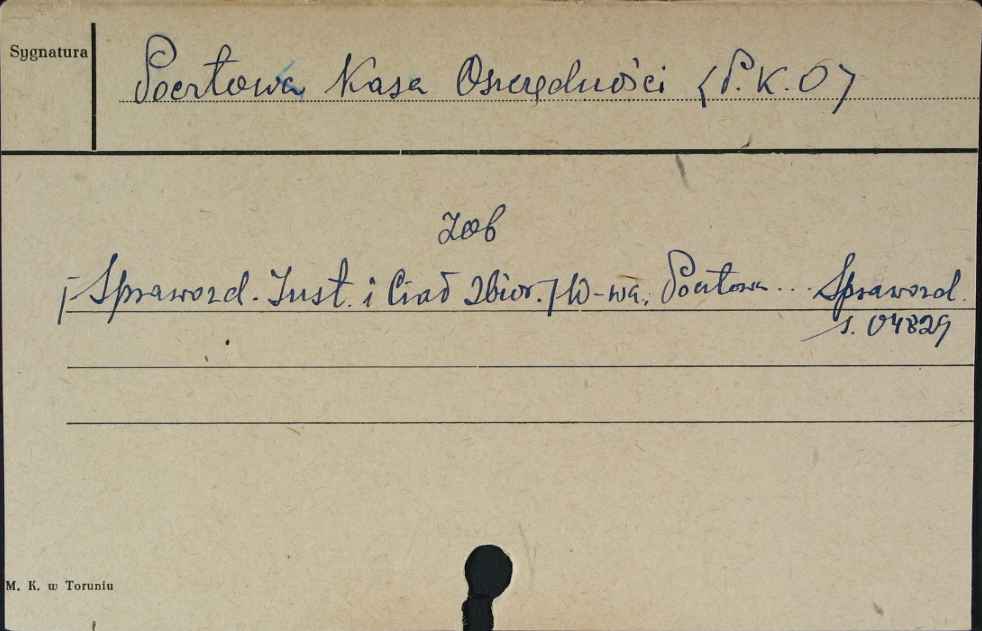 Sygnatura
Pocztowa Kasa Oszczędności (P.K.O)
zob
[Sprawozd. Inst. i Ciał Zbior.] W-wa, Pocztowa... Sprawozd.
s. 04829
M. K. w Toruniu